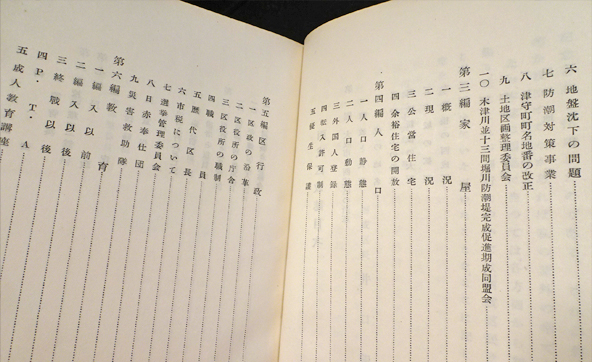 六 地盤沈下の問題
七 防潮対策事業
八 津守町町名地番の改正
九 土地区画整理委員会
一〇 木津川並十三間堀川防潮堤完成促進期成同盟会
第三編 家屋
一 概況
二 現況
三 公営住宅
四 余裕住宅の開放
第四編 人口
一 人口静態
二 人口動態
三 外国人登録
四 転入許可制
五 優生保護
第五編 区行政
一 区政の沿革
二 区役所の庁舎
三 区役所の職制
四 職制
五 歴代区長
六 市税について
七 選挙管理委員会
八 日赤奉仕団
九 災害救助隊
第六編 教育
一 編入以前
二 編入以後
三 終戦以後
四 P・T・A
五 成人教育講座